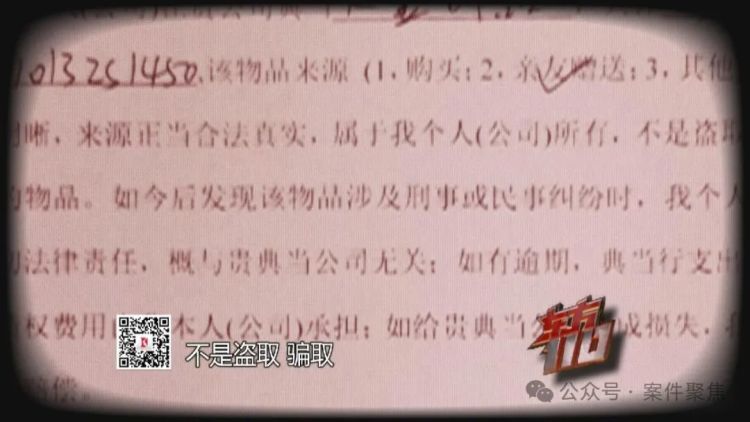 1013251450.该物品来源 (1, 购买; 2, 亲友赠送; 3, 其他
晰, 来源正当合法真实, 属于我个人(公司)所有, 不是盗取
物品。如今后发现该物品涉及刑事或民事纠纷时, 我个人
法律责任, 概与贵典当公司无关; 如有逾期, 典当行支出
权费用 本人(公司)承担; 如给贵典当 成损失,
赔偿。
不是盗取 骗取
公众号·案件聚焦